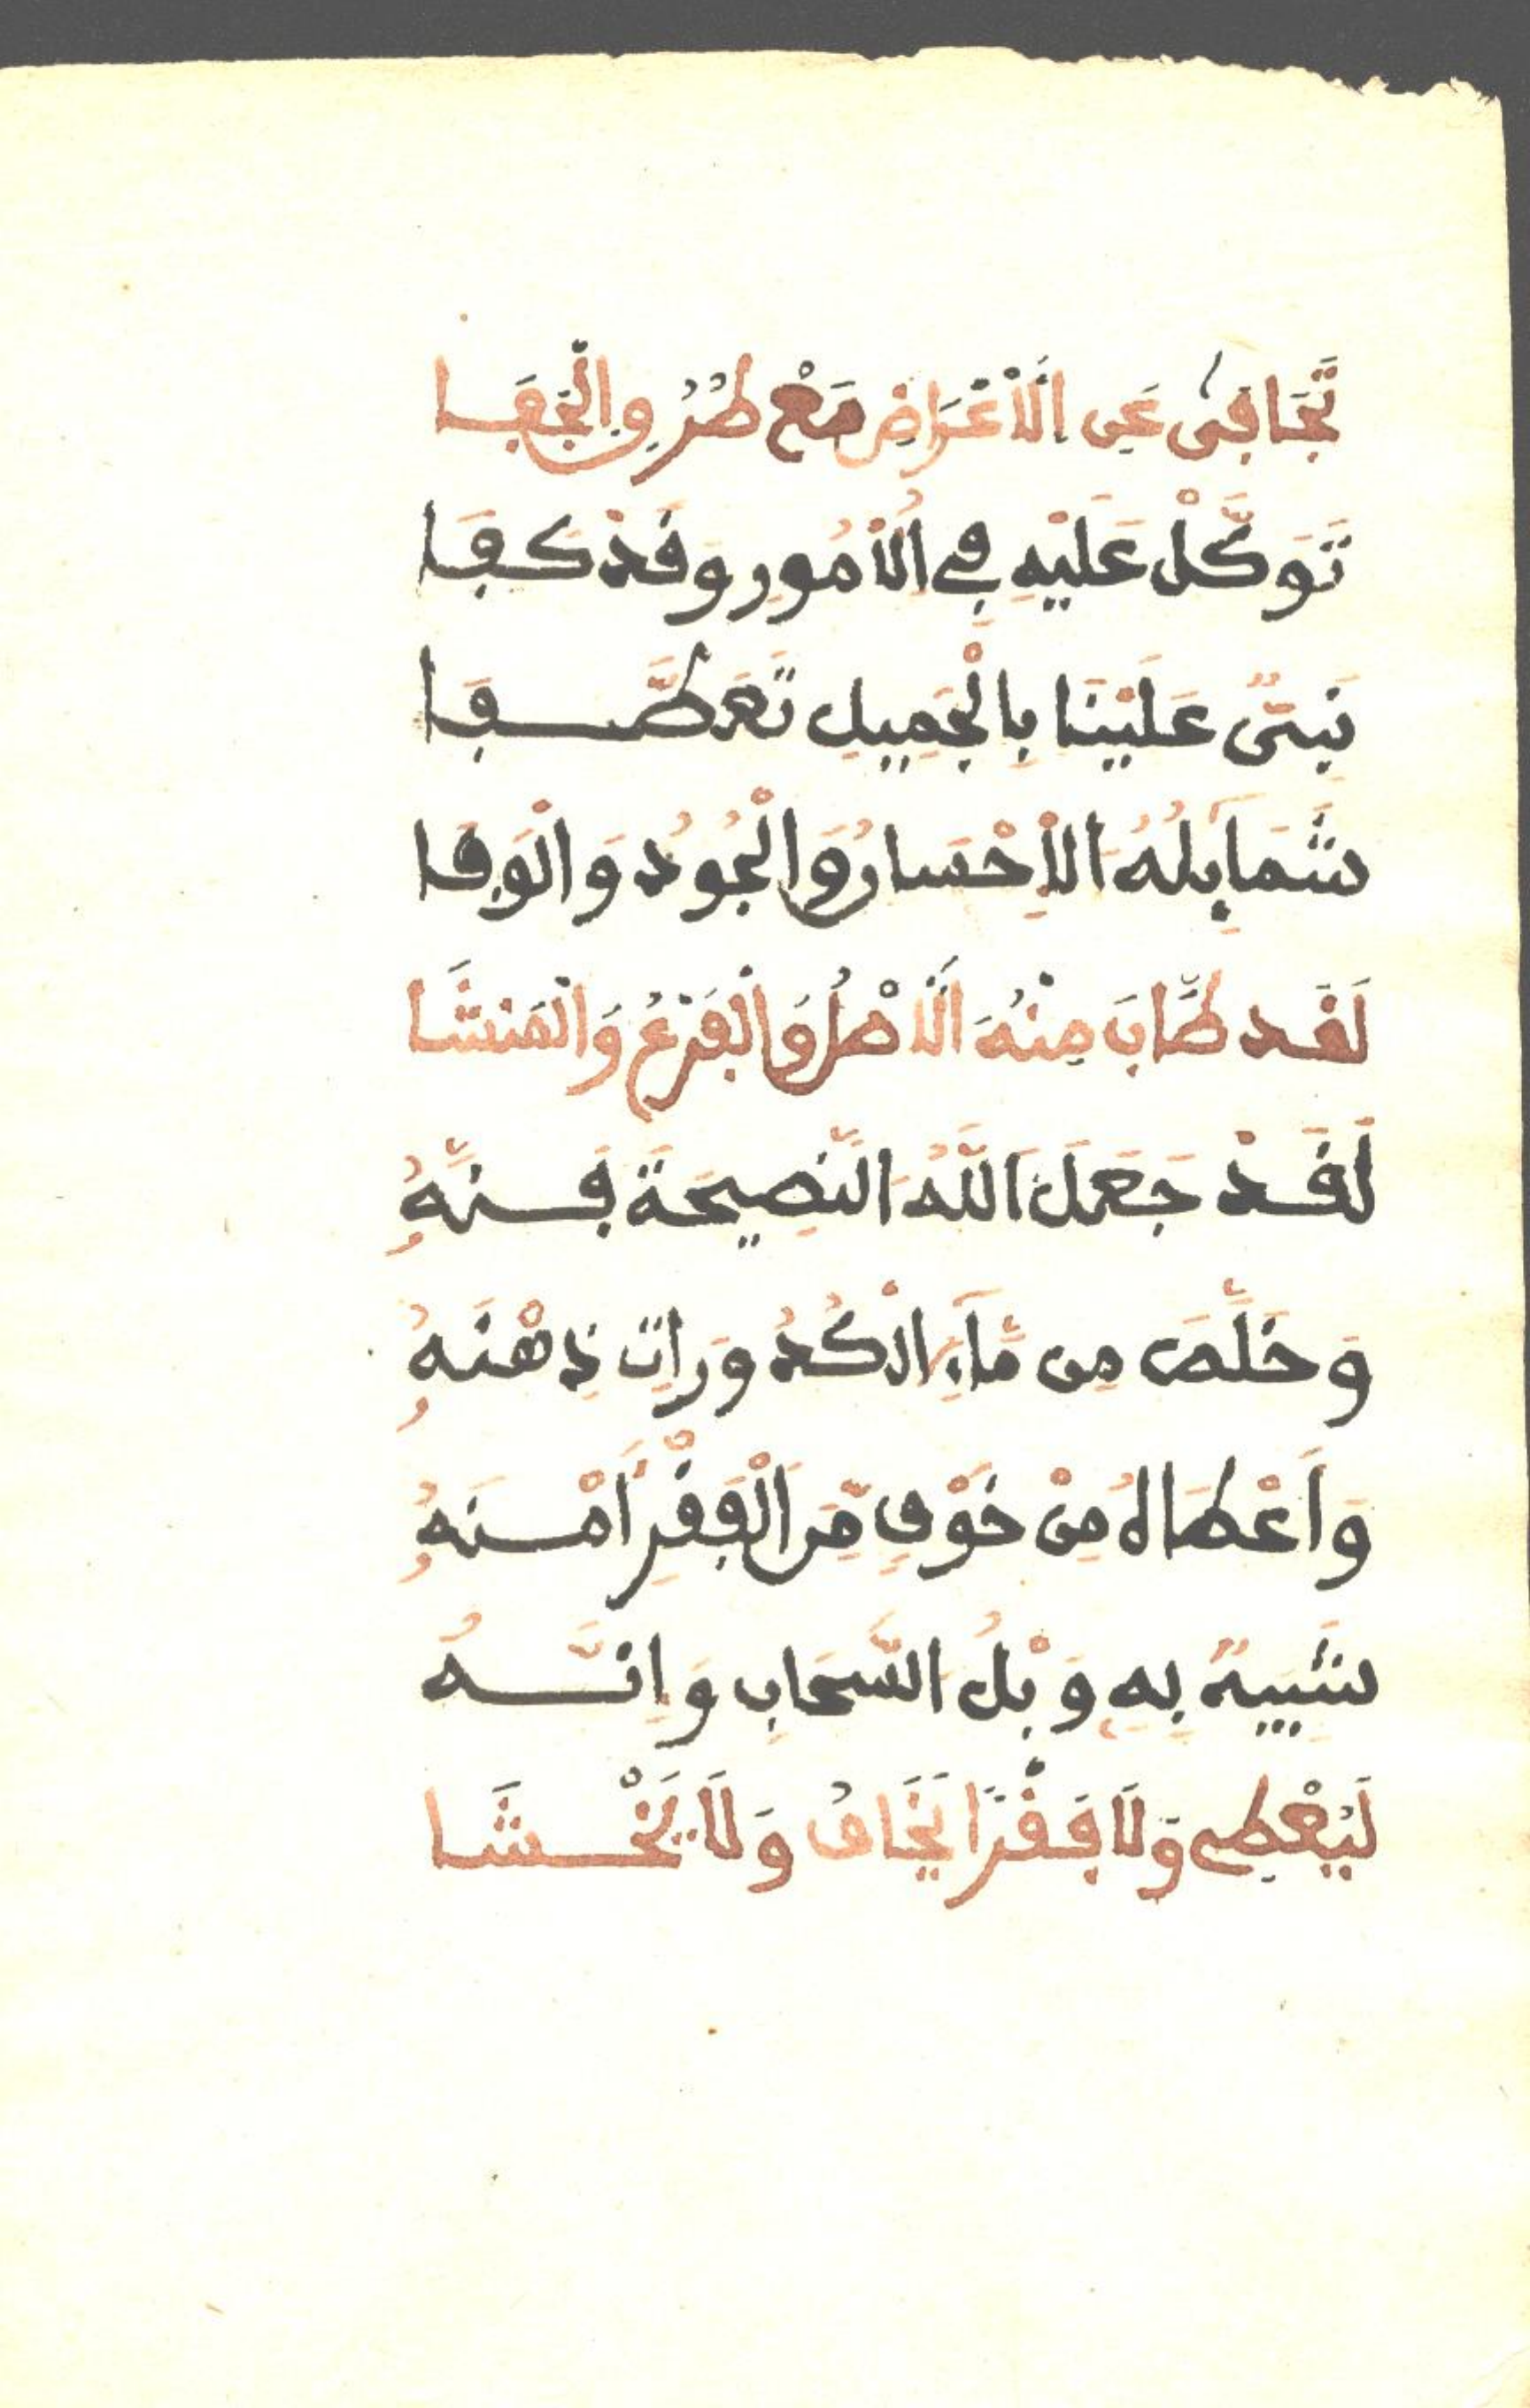 تَّجَافِى عَنِ اَلَاعْرَاضِ مَعْ طُرُوِ الْجَفَا
تَوَكَّلْ عَلَيْهِ فِے اِلُامُورِ وَقَدْ كَفَا
نَبِىٌّ عَلَيْنَا بِالْجَمِيلِ تَعَطَّفَا
شَمَآئِلُهُ اَلِاحْسَانُ وَالْجُودُ وَالْوَفَا
لَقَد طَّابَ مِنْهُ اَلَاصْلُ وَالْفَرْعُ وَالْمَنشَا
لَقَدْ جَعَلَ اَللَّهُ اَلنَّصِيحَةَ فَنَّهُ
وَخَلَّصَ مِن مَّآءِ الْكُدُورَاتِ ذِهْنَهُ
وَأَعْطَاهُ مِنْ خَوْفٍ مِّنَ اَلْفَقْرِ أَمْنَهُ
شَبِيهٌ بِهِ وَبْلُ السَّحَابِ وَإِنَّهُ
لَيُعْطِے وَلَا فَقْرًا يَخَافُ وَلَا يَخْشَا